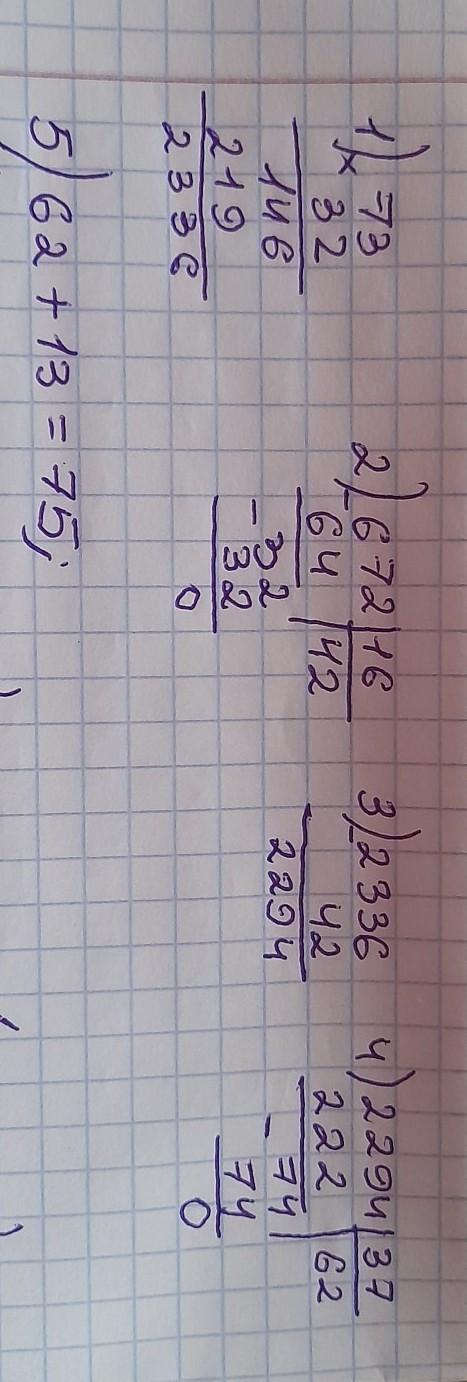 1) × 73 2) - 672 | 16 3) - 2336 4) 2294 | 37
32 64 | 42 42 222 | 62
146 - 32 2294 - 74
219 32 74
2336 0 0
5) 62 + 13 = 75;